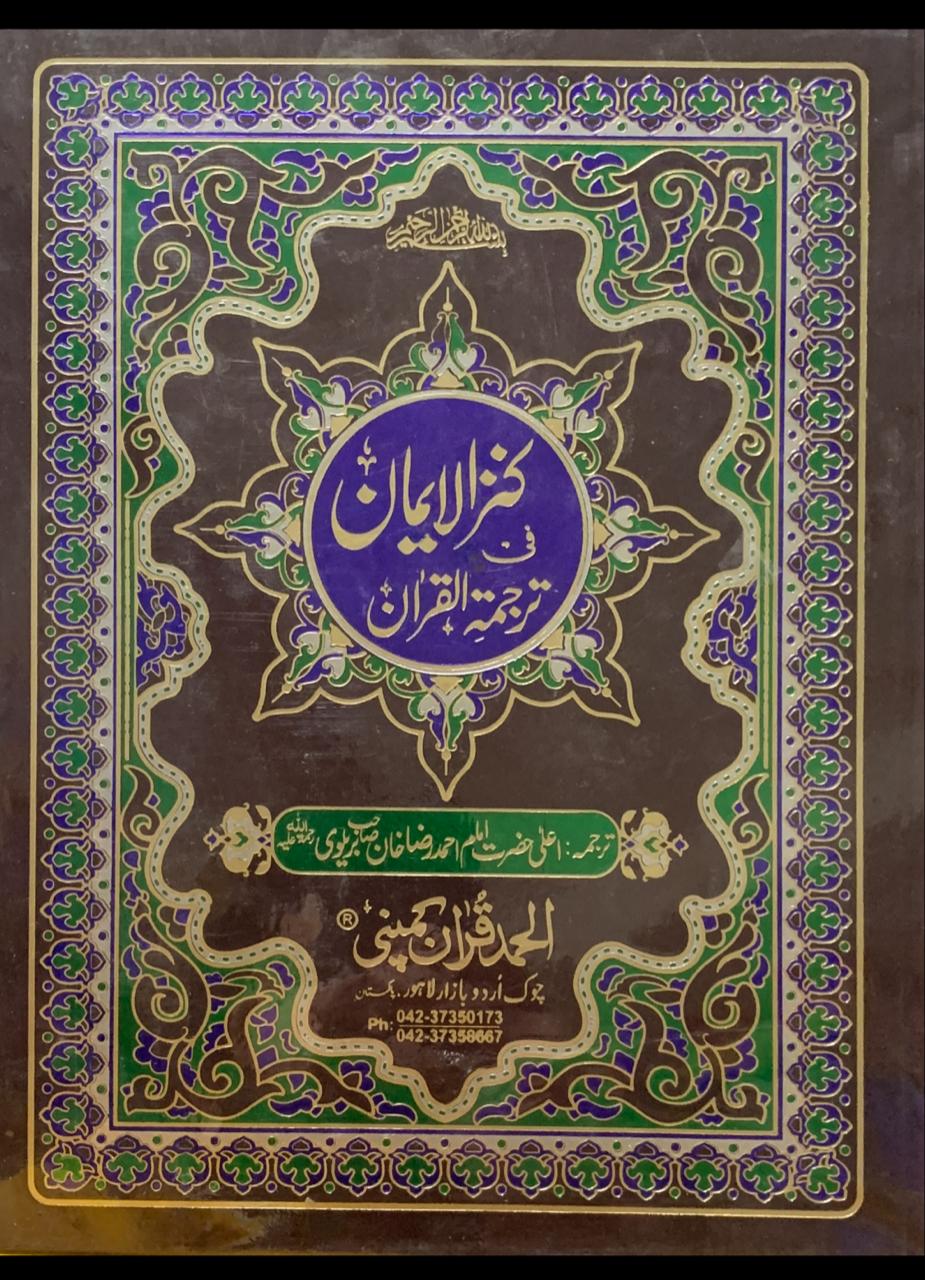 بسم الله الرحمن الرحيم
کنزالایمان
فی
ترجمۃِ القرآن
ترجمہ: اعلیٰ حضرت امام احمد رضا خان صاحب بریلوی رحمۃ اللہ علیہ
الحمد قرآن کمپنی ®
چوک اُردو بازار لاہور، پاکستان
Ph: 042-37350173
042-37358667